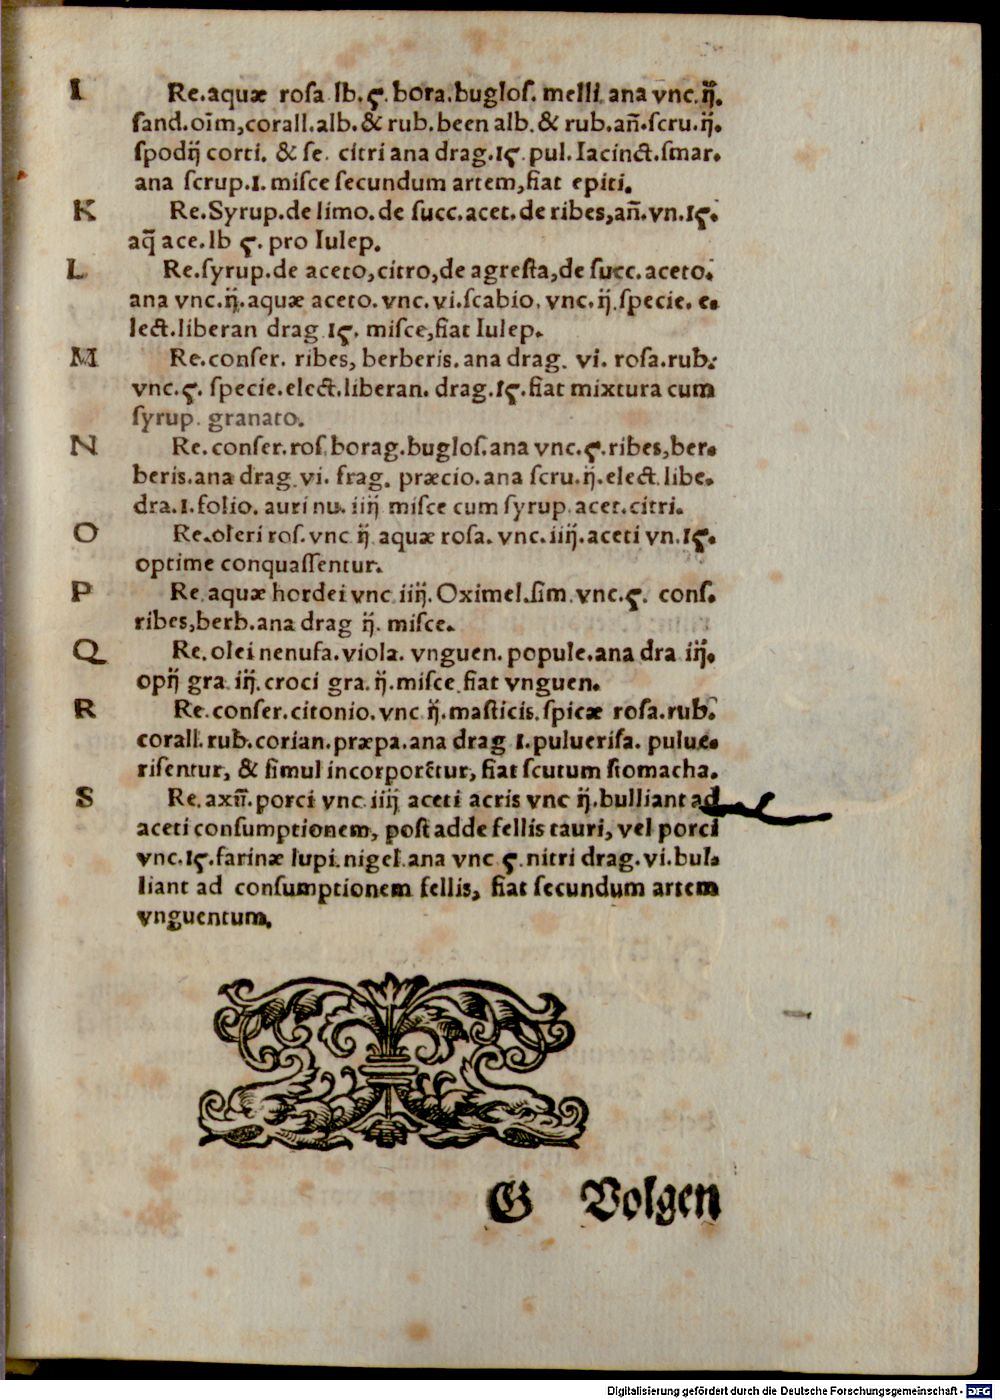 I Re. aquæ rosa lb. ς. bora. buglos. melli. ana vnc. ij.
sand. oīm, corall. alb. & rub. been alb. & rub. añ. scru. ij.
spodij corti. & se. citri ana drag. Iς. pul. Iacinct. smar.
ana scrup. I. misce secundum artem, fiat epiti.
K Re. Syrup. de limo. de succ. acet. de ribes, añ. vn. Iς.
aq̃ ace. lb ς. pro Iulep.
L Re. syrup. de aceto, citro, de agresta, de succ. aceto.
ana vnc. ij. aquæ aceto. vnc. vi. scabio. vnc. ij. specie. e-
lect. liberan drag Iς. misce, fiat Iulep.
M Re. conser. ribes, berberis. ana drag. vi. rosa. rub.
vnc. ς. specie. elect. liberan. drag. Iς. fiat mixtura cum
syrup. granato.
N Re. conser. ros. borag. buglos. ana vnc. ς. ribes, ber-
beris. ana drag. vi. frag. præcio. ana scru. ij. elect. libe.
dra. I. folio. auri nu. iiij misce cum syrup. acet. citri.
O Re. oleri ros. vnc ij aquæ rosa. vnc. iiij. aceti vn. Iς.
optime conquassentur.
P Re aquæ hordei vnc iiij. Oximel. sim. vnc. ς. cons.
ribes, berb. ana drag ij. misce.
Q Re. olei nenufa. viola. vnguen. popule. ana dra iij.
opij gra. iij. croci gra. ij. misce. fiat vnguen.
R Re. conser. citonio. vnc ij. masticis. spicæ rosa. rub.
corall. rub. corian. præpa. ana drag I. puluerisa. pulue-
risentur, & simul incorporētur, fiat scutum stomacha.
S Re. axū. porci vnc iiij aceti acris vnc ij. bulliant ad
aceti consumptionem, post adde fellis tauri, vel porci
vnc. Iς. farinæ lupi. nigel. ana vnc ς. nitri drag. vi. bul-
liant ad consumptionem fellis, fiat secundum artem
vnguentum.
G Volgen
Digitalisierung gefördert durch die Deutsche Forschungsgemeinschaft - DFG